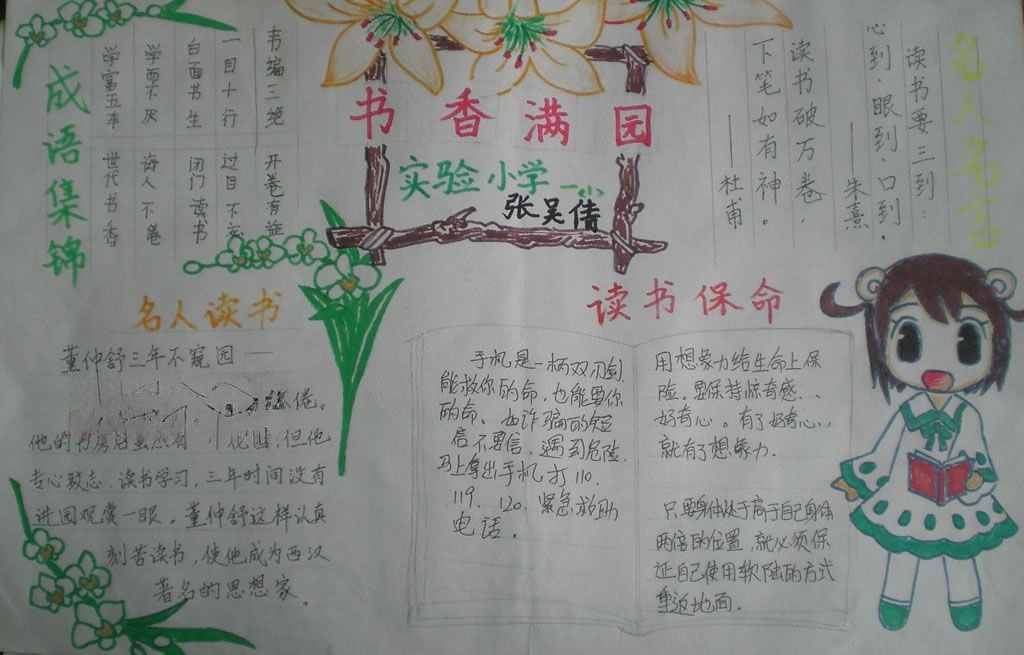 书香满园
实验小学一、小
张吴倩
成语集锦
韦编三绝 开卷有益
一目十行 过目不忘
白面书生 闭门读书
学而不厌 诲人不倦
学富五车 世代书香
名人名言
读书要三到：
心到、眼到、口到。
——朱熹
读书破万卷，
下笔如有神。
——杜甫
名人读书
董仲舒三年不窥园——
倦。
他的书房后虽然有 花园，但他
专心致志，读书学习，三年时间没有
进园观赏一眼。董仲舒这样认真
刻苦读书，使他成为西汉
著名的思想家。
读书保命
手机是一柄双刃剑，
能救你的命，也能要你
的命。诈骗的短
信不要信，遇到危险，
马上拿出手机打110、
119、120、紧急救助
电话。
用想象力给生命上保
险。要保持惊奇感、
好奇心。有了好奇心，
就有了想象力.
只要身体处于高于自己身体
两倍的位置，就必须保
证自己使用软陆的方式
重返地面。